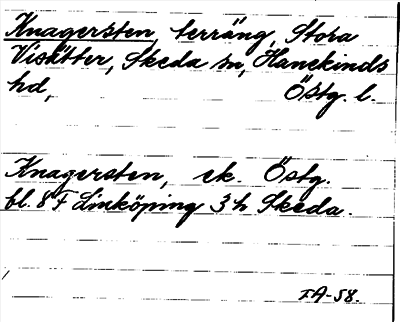 Knagersten, terräng, Stora
Visätter, Skeda sn, Hanekinds
hd, Östg. l.
Knagersten, ek. Östg.
bl. 8 F Linköping 3 h Skeda.
FA-58.